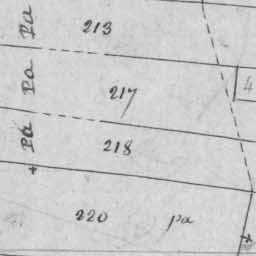 Pa 213
Pa 217
4
Pa 218
220 pa